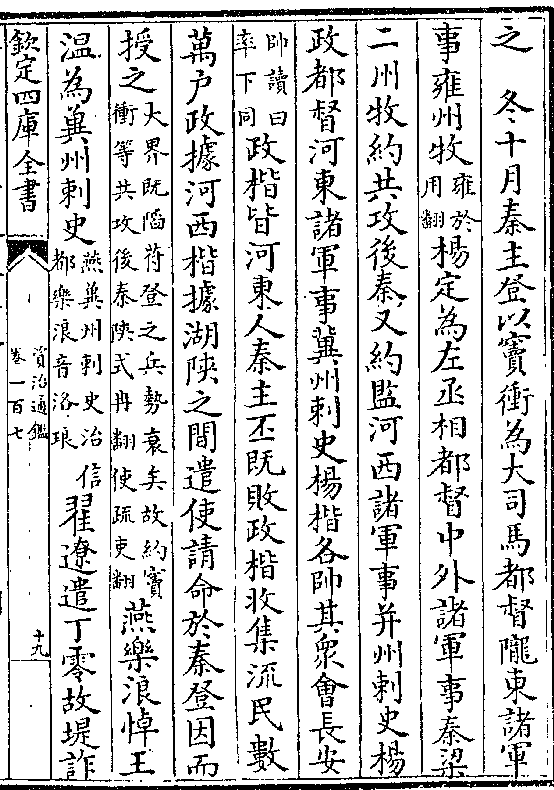 之　冬十月秦主登以竇衝為大司馬都督隴東諸軍
事雍州牧雍於用翻楊定為左丞相都督中外諸軍事秦梁
二州牧約共攻後秦又約監河西諸軍事并州刺史楊
政都督河東諸軍事冀州刺史楊楷各帥其衆會長安
帥讀曰率下同政楷皆河東人秦主丕既敗政楷收集流民數
萬户政據河西楷據湖陜之間遣使請命於秦登因而
授之大界既䧟苻登之兵勢衰矣故約竇衝等共攻後秦陜式冉翻使疏吏翻燕樂浪悼王
温為冀州刺史燕冀州刺史治信都樂浪音洛琅翟遼遣丁零故堤詐
欽定四庫全書
資治通鑑
卷一百七
十九